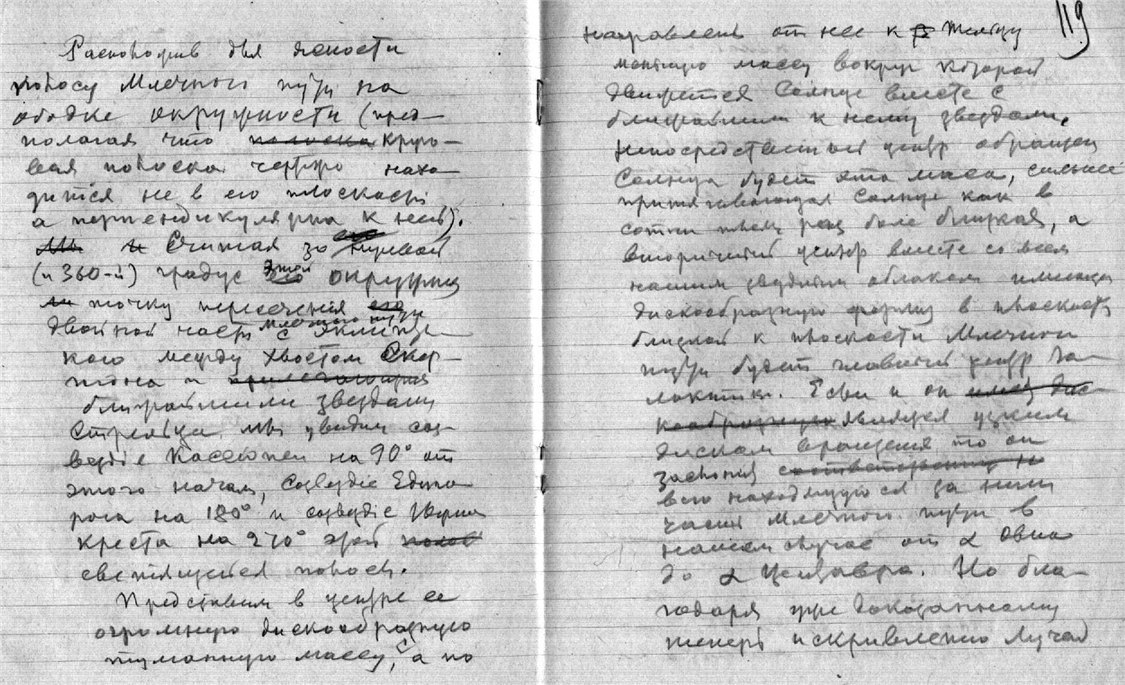 Расположив для ясности
полосу Млечного пути на
ободке окружности (пред-
полагая что полоска круго-
вая полоска
дится не в его плоскости
а перпендикулярна к ней).
Считая за нулевой
(и 360-й) градус этой окружн
точку пересечения
двойной части Млечного пути с эклипти
кого между хвостом Скор-
пиона и
ближайшими звездами
Стрельца мы увидим соз-
вездие Кассиопеи на 90° от
этого начала, созвездие Едино
рога на 180° и созвездие Южн
креста на 270° этой
светящейся полосы.
Представим в центре ее
огромную дискообразную
туманную массу, а по
119
направлению от нее к Стрельцу
меньшую массу вокруг которой
движется Солнце вместе с
ближайшими к нему звездами.
Непосредственный центр обращен
Солнца будет эта масса, сильнее
притягивающая Солнце как в
сотни тысяч раз более близкая, а
вторичный центр вместе со всем
нашим звездным облаком имеющ
дискообразную форму в плоскости
близкой к плоскости Млечного
пути будет главный центр Га-
лактики. Если и он дис-
кообразную является узким
диском вращения то он
заслонит
всю находящуюся за ним
часть Млечного пути в
нашем случае от α Овна
до α Центавра. Но бла-
годаря уже доказанному
теперь искривлению лучей